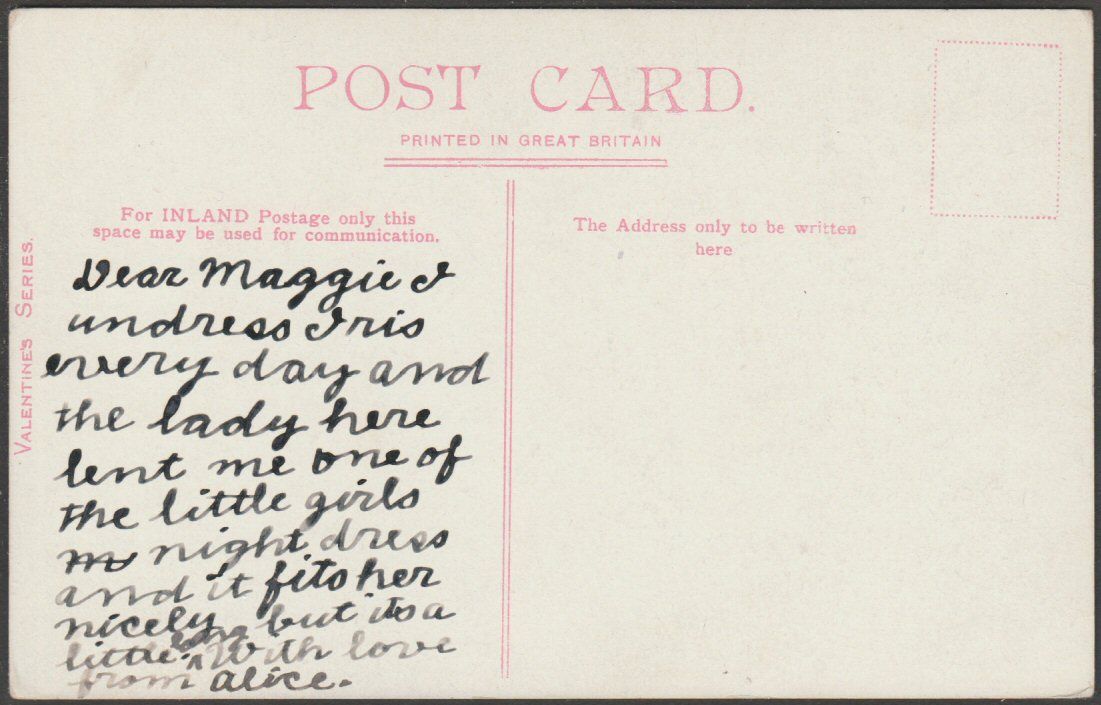 POST CARD.
PRINTED IN GREAT BRITAIN
For INLAND Postage only this
space may be used for communication.
The Address only to be written
here
VALENTINE'S SERIES.
Dear Maggie I
undress Iris
every day and
the lady here
lent me one of
the little girls
night dress
and it fits her
nicely but its a
little long With love
from Alice.